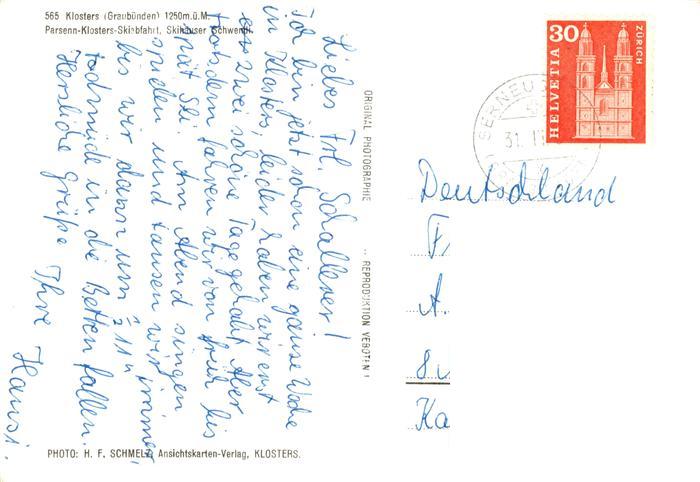 565 Klosters (Graubünden) 1250m.ü.M.
Parsenn-Klosters-Skiabfahrt, Skihäuser Schwendi
Liebes Frl. Schallener!
Ich bin jetzt schon eine ganze Woche
in Klosters, leider haben wir erst
erst zwei schöne Tage gehabt. Aber
trotzdem fahren wir von früh bis
spät Ski. Am Abend singen
spielen und tanzen wir immer,
bis wir dann um ½ 11ʰ
todmüde in die Betten fallen.
Herzliche Grüße
Ihre Hansi.
ORIGINAL PHOTOGRAPHIE .. REPRODUKTION VEBOTEN!
30
HELVETIA
ZÜRICH
SERNEUS
31.
Deutschland
F
A.
8
Ka
PHOTO: H. F. SCHMELZ Ansichtskarten-Verlag, KLOSTERS.